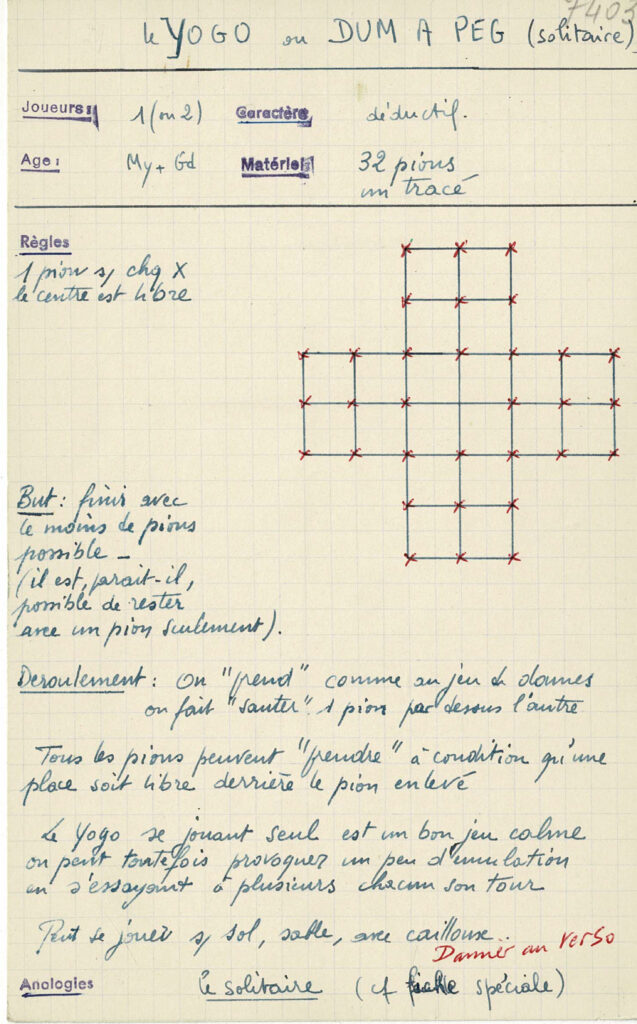 7403
le YOGO ou DUM A PEG (solitaire)
Joueurs: 1 (ou 2) Caractère déductif.
Age: My + Gd Matériel 32 pions
un tracé
Règles
1 pion s/ chq X
le centre est libre
But : finir avec
le moins de pions
possible –
(il est, parait-il,
possible de rester
avec un pion seulement).
Deroulement : On "prend" comme au jeu de dames
on fait "sauter" 1 pion par dessus l'autre
Tous les pions peuvent "prendre" à condition qu'une
place soit libre derrière le pion enlevé
Le Yogo se jouant seul est un bon jeu calme
on peut toutefois provoquer un peu d'emulation
en s'essayant à plusieurs chacun son tour
Peut se jouer s/ sol, sable, avec cailloux..
Damier au verso
Analogies le solitaire (cf fiche spéciale)